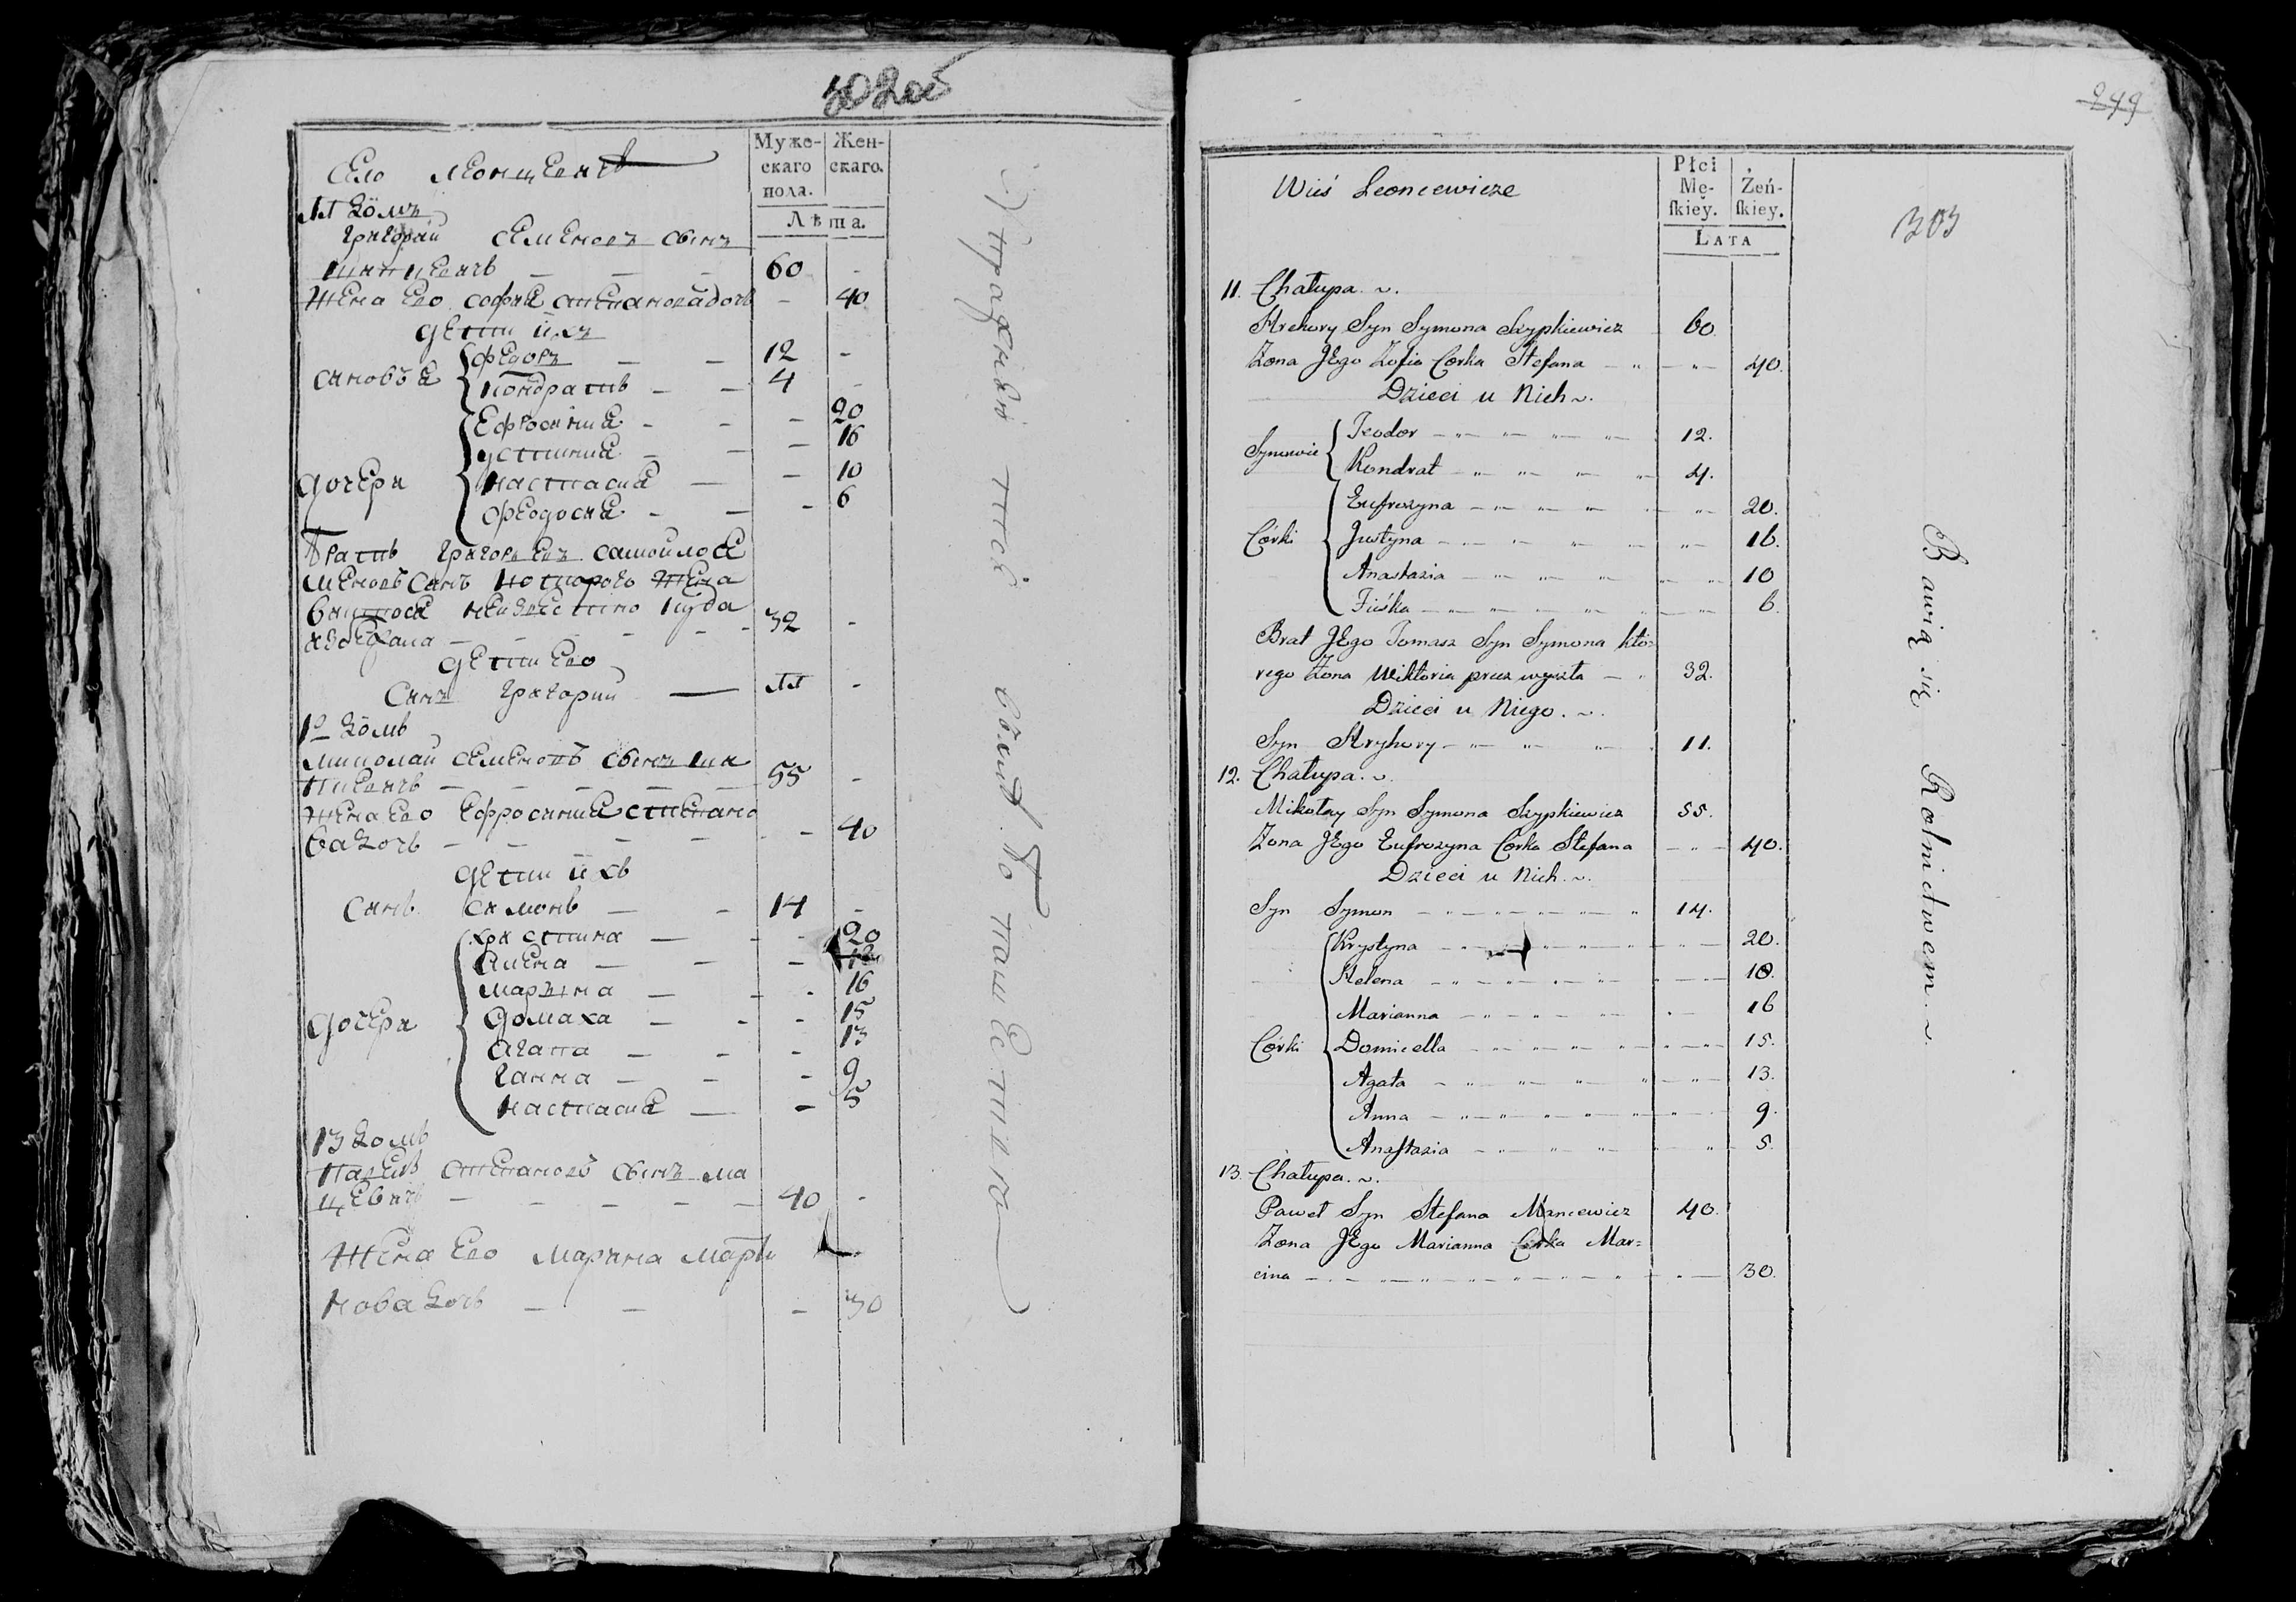 302об
Муже-
скаго
пола.
Жен-
скаго.
Лѣта.
Село
11 Домъ
Григорий Семеновъ сынъ
60 -
Жена Его Софиа Степановадочь - 40
Дети ихъ
Сановья
Федоръ 12 -
Кондратъ 4 -
Дочери
Ефросиниа - 20
Устиниа - 16
Настасиа - 10
Феодосиа - 6
Братъ Григорьевъ Самойло Се
меновъ Санъ Котораго Жена
неизвестно куда
32 -
Дети Его
Санъ Григорий 11 -
12 Домъ
Миколай Семеновъ сынъ Ши
пкевичъ 55 -
Жена Его Ефросиниа Степано
ва Дочь - 40
Дети ихъ
Санъ Симонъ 14 -
Дочери
Христина - 20
Алена
Марына - 16
Домаха - 15
Агапа - 13
Ганна - 9
Настасиа - 5
13 Домъ
Павелъ Степановъ сынъ Ма
цевичъ 40 -
Жена Его Марина Марти
нова Дочь - 30
249
303
Wieś Leoncewicze
Płci
Mę-
skiey.
Żeń-
skiey.
LATA
11. Chałupa.
Hrehory Syn Symona Szypkiewicz 60.
Zona JEgo Zofia Corka Stefana 40.
Dzieci u Nich.
Synowie
Teodor 12.
Kondrat 4.
Córki
Eufrozyna 20.
Justyna 16.
Anastazia 10
Fieśka 6.
Brat JEgo Tomasz Syn Symona któ=
rego Zona Wiktoria precz wyszła 32.
Dzieci u Niego.
Syn Hryhory 11.
12. Chałupa.
Mikołay Syn Symona Szypkiewicz 55.
Zona JEgo Eufrozyna Corka Stefana 40.
Dzieci u Nich.
Syn Symon 14.
Córki
Krystyna 20.
Helena 18.
Marianna 16
Domicella 15.
Agata 13.
Anna 9.
Anastazia 5.
13. Chałupa.
Paweł Syn Stefana Mancewicz 40.
Zona JEgo Marianna Corka Mar=
cina 30.
Bawią się Rolnictwem.